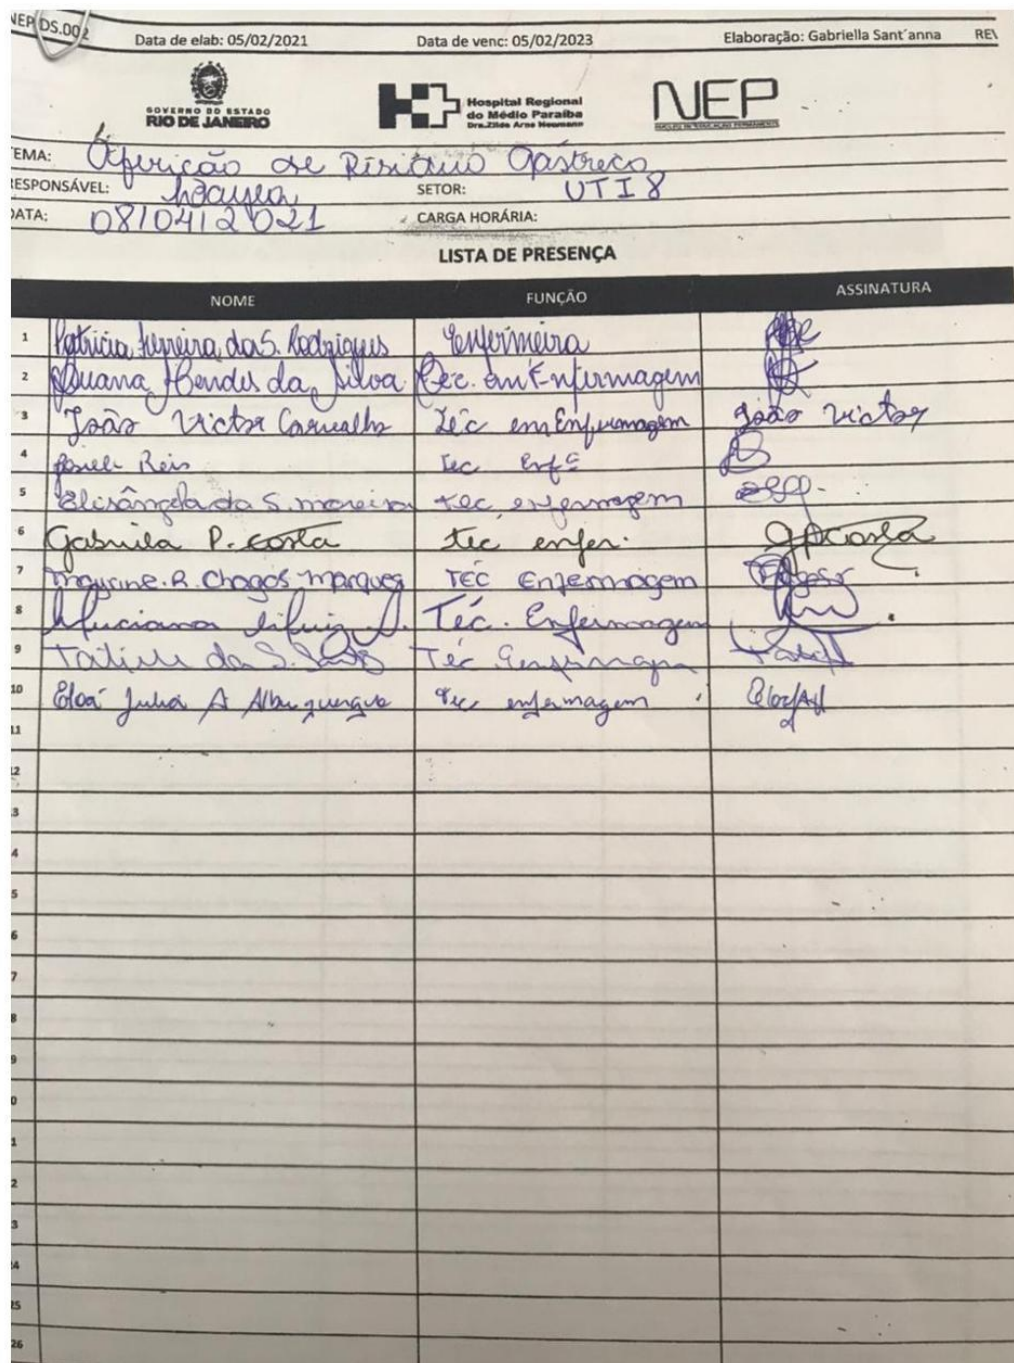 NEP DS.002 Data de elab: 05/02/2021 Data de venc: 05/02/2023 Elaboração: Gabriella Sant´anna REV
GOVERNO DO ESTADO
RIO DE JANEIRO
Hospital Regional
do Médio Paraíba
Dra.Zilda Arns Neumann
NEP
NÚCLEO DE EDUCAÇÃO PERMANENTE
TEMA: Aferição de Residuo Gastrico
RESPONSÁVEL: SETOR: UTI 8
DATA: 08/04/2021 CARGA HORÁRIA:
LISTA DE PRESENÇA
NOME FUNÇÃO ASSINATURA
1 Patricia Ferreira da S. Rodrigues Enfermeira
2 Luana Mendes da Silva Tec. em Enfermagem
3 João Victor Carvalho Téc em Enfermagem João Victor
4 Reis Tec Enfª
5 Elisângela da S. moreira tec enfermagem
6 Gabriela P. costa tec enfer. GPCosta
7 Mayrine. R. Chagas Marques TÉC Enfermagem
8 Luciana Téc. Enfermagem
9 da S. Téc Enfermagem
10 Eloá Julia A Albuquerque Tec enfermagem
11
12
3
4
5
6
7
8
9
0
1
2
3
24
25
26